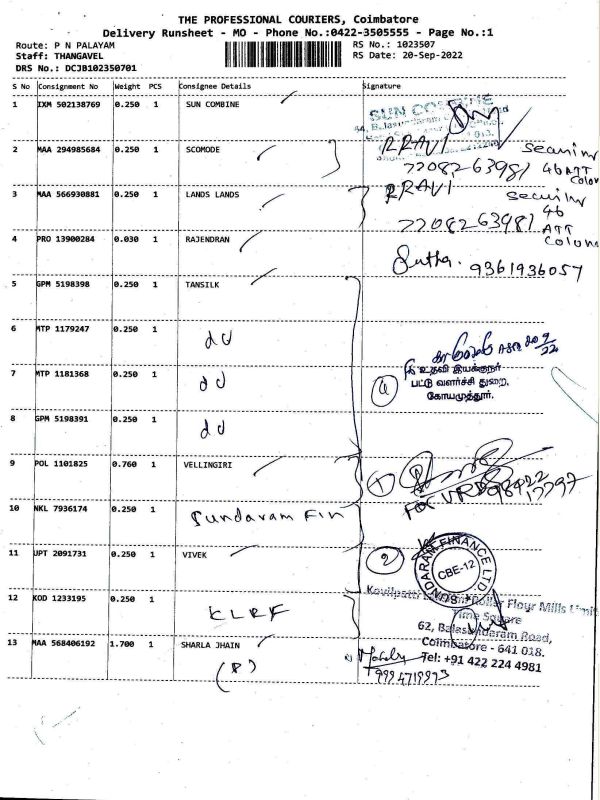 THE PROFESSIONAL COURIERS, Coimbatore
Delivery Runsheet - MO - Phone No.:0422-3505555 - Page No.:1
Route: P N PALAYAM
Staff: THANGAVEL
DRS No.: DCJB102350701
RS No.: 1023507
RS Date: 20-Sep-2022
S No Consignment No Weight PCS Consignee Details Signature
1 IXM 502138769 0.250 1 SUN COMBINE
SUN COMBINE
2 MAA 294985684 0.250 1 SCOMODE
R RAVI
7208263981 46 ATT
3 MAA 566930881 0.250 1 LANDS LANDS
R RAVI
7208263981 46
ATT
4 PRO 13900284 0.030 1 RAJENDRAN
Sutha. 9361936057
5 GPM 5198398 0.250 1 TANSILK
6 MTP 1179247 0.250 1 dd
7 MTP 1181368 0.250 1 dd
4
உதவி இயக்குநர்
பட்டு வளர்ச்சி துறை,
கோயமுத்தூர்.
8 GPM 5198391 0.250 1 dd
9 POL 1101825 0.760 1 VELLINGIRI
1
10 NKL 7936174 0.250 1 Sundaram Fin
11 UPT 2091731 0.250 1 VIVEK
2
SUNDARAM FINANCE LTD
CBE-12
12 KOD 1233195 0.250 1 KLRF
Kovilpatti Lakshmi Roller Flour Mills Limit
Time Square
62, Balasundaram Road,
Coimbatore - 641 018.
Tel: +91 422 224 4981
13 MAA 568406192 1.700 1 SHARLA JHAIN
(P)